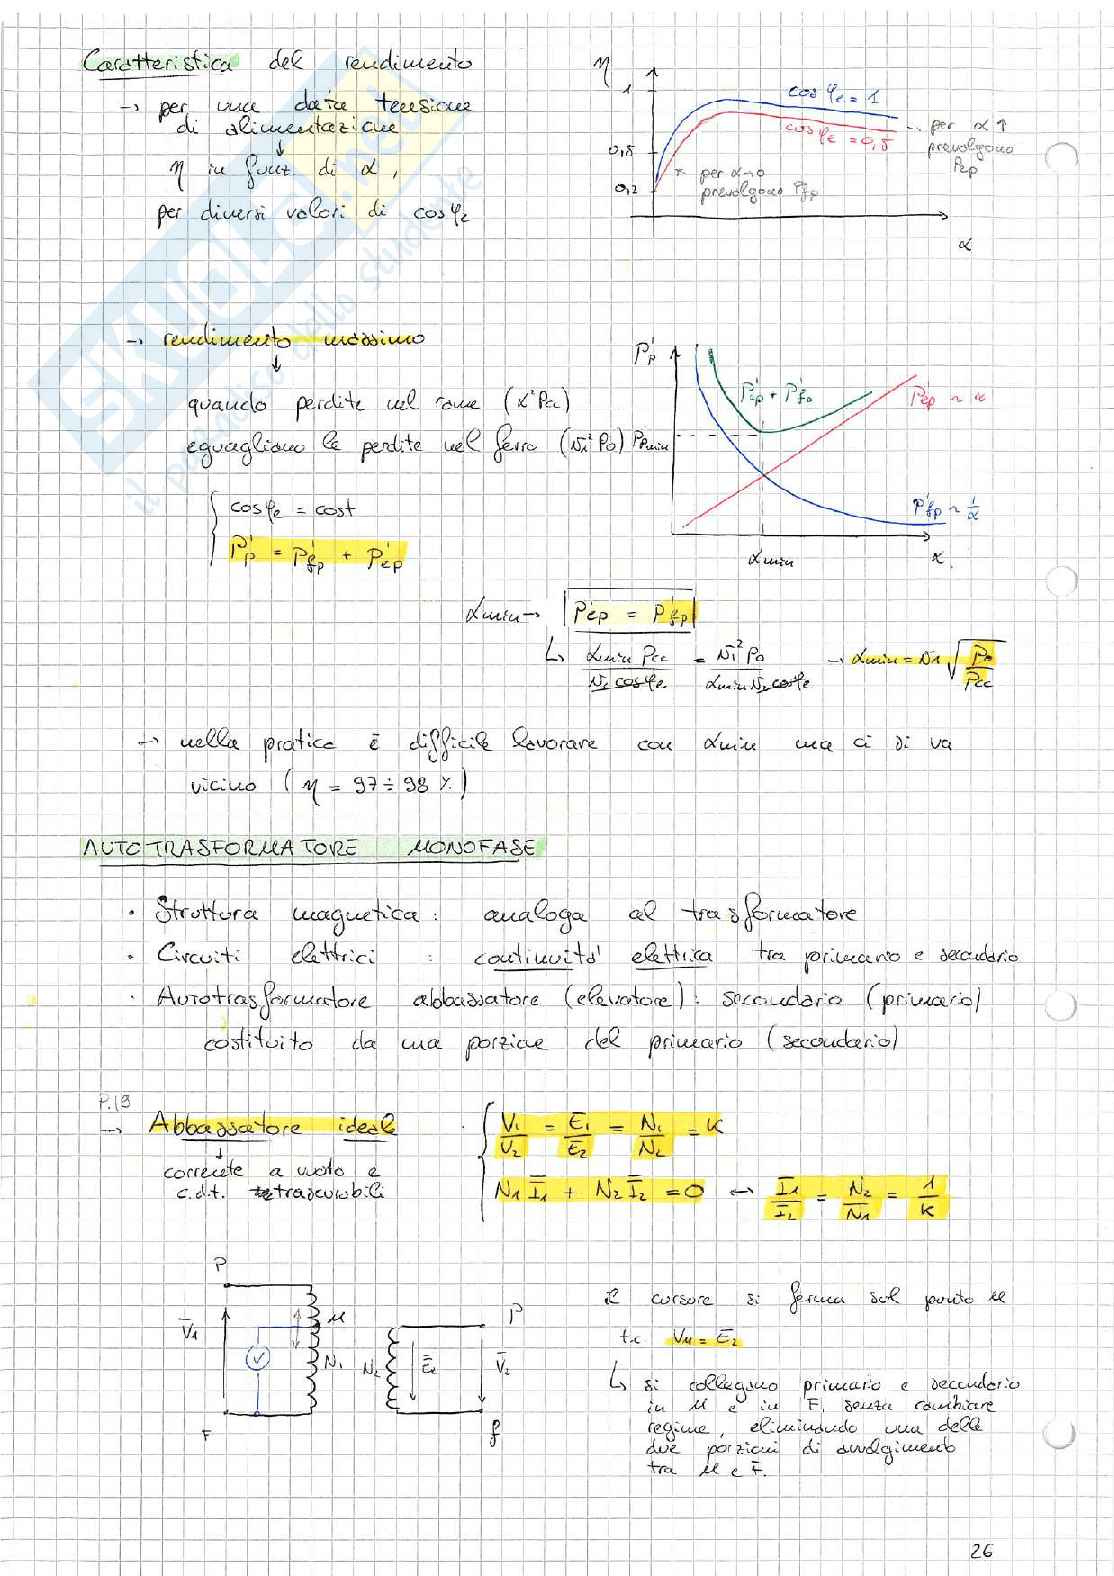 Caratteristica del rendimento
→ per una data tensione
di alimentazione
↓
η in funz di α,
per diversi valori di cosφ₂
η
1
0,5
0,2
cosφ₂ = 1
cosφ₂ = 0,5
per α↑
prevalgono
Pep
* per α→0
prevalgono Pfp
α
→ rendimento massimo
↓
quando perdite nel rame (α²Pcc)
eguagliano le perdite nel ferro (v₁²P₀)
{ cosφ₂ = cost
P'p = P'fp + P'ep
P'p
Ppmin
P'ep + P'fp
P'ep ~ α
P'fp ~ 1/α
αmin
α
αmin → P'ep = P'fp
↳ αmin Pcc / v₂ cosφ₂ = v₁² P₀ / αmin v₂ cosφ₂ → αmin = v₁ √(P₀/Pcc)
→ nella pratica è difficile lavorare con αmin ma ci si va
vicino (η = 97 ÷ 98 %)
AUTOTRASFORMATORE MONOFASE
· Struttura magnetica : analoga al trasformatore
· Circuiti elettrici : continuità elettrica tra primario e secondario
· Autotrasformatore abbassatore (elevatore) : secondario (primario)
costituito da una porzione del primario (secondario)
P.19
→ Abbassatore ideale
↓
corrente a vuoto e
c.d.t. trascurabili
{ V₁/V₂ = E₁/E₂ = N₁/N₂ = K
N₁ I̅₁ + N₂ I̅₂ = 0 ↔ I̅₁/I̅₂ = N₂/N₁ = 1/K
P
V̅₁
V
M
N₁
F
N₂
E̅₂
P
V̅₂
f
Il cursore si ferma sul punto M
t.c. VM = E̅₂
↳ si collegano primario e secondario
in M e in F, senza cambiare
regime, eliminando una delle
due porzioni di avvolgimento
tra M e F.
26
SKUOLA.net
il paradiso dello studente